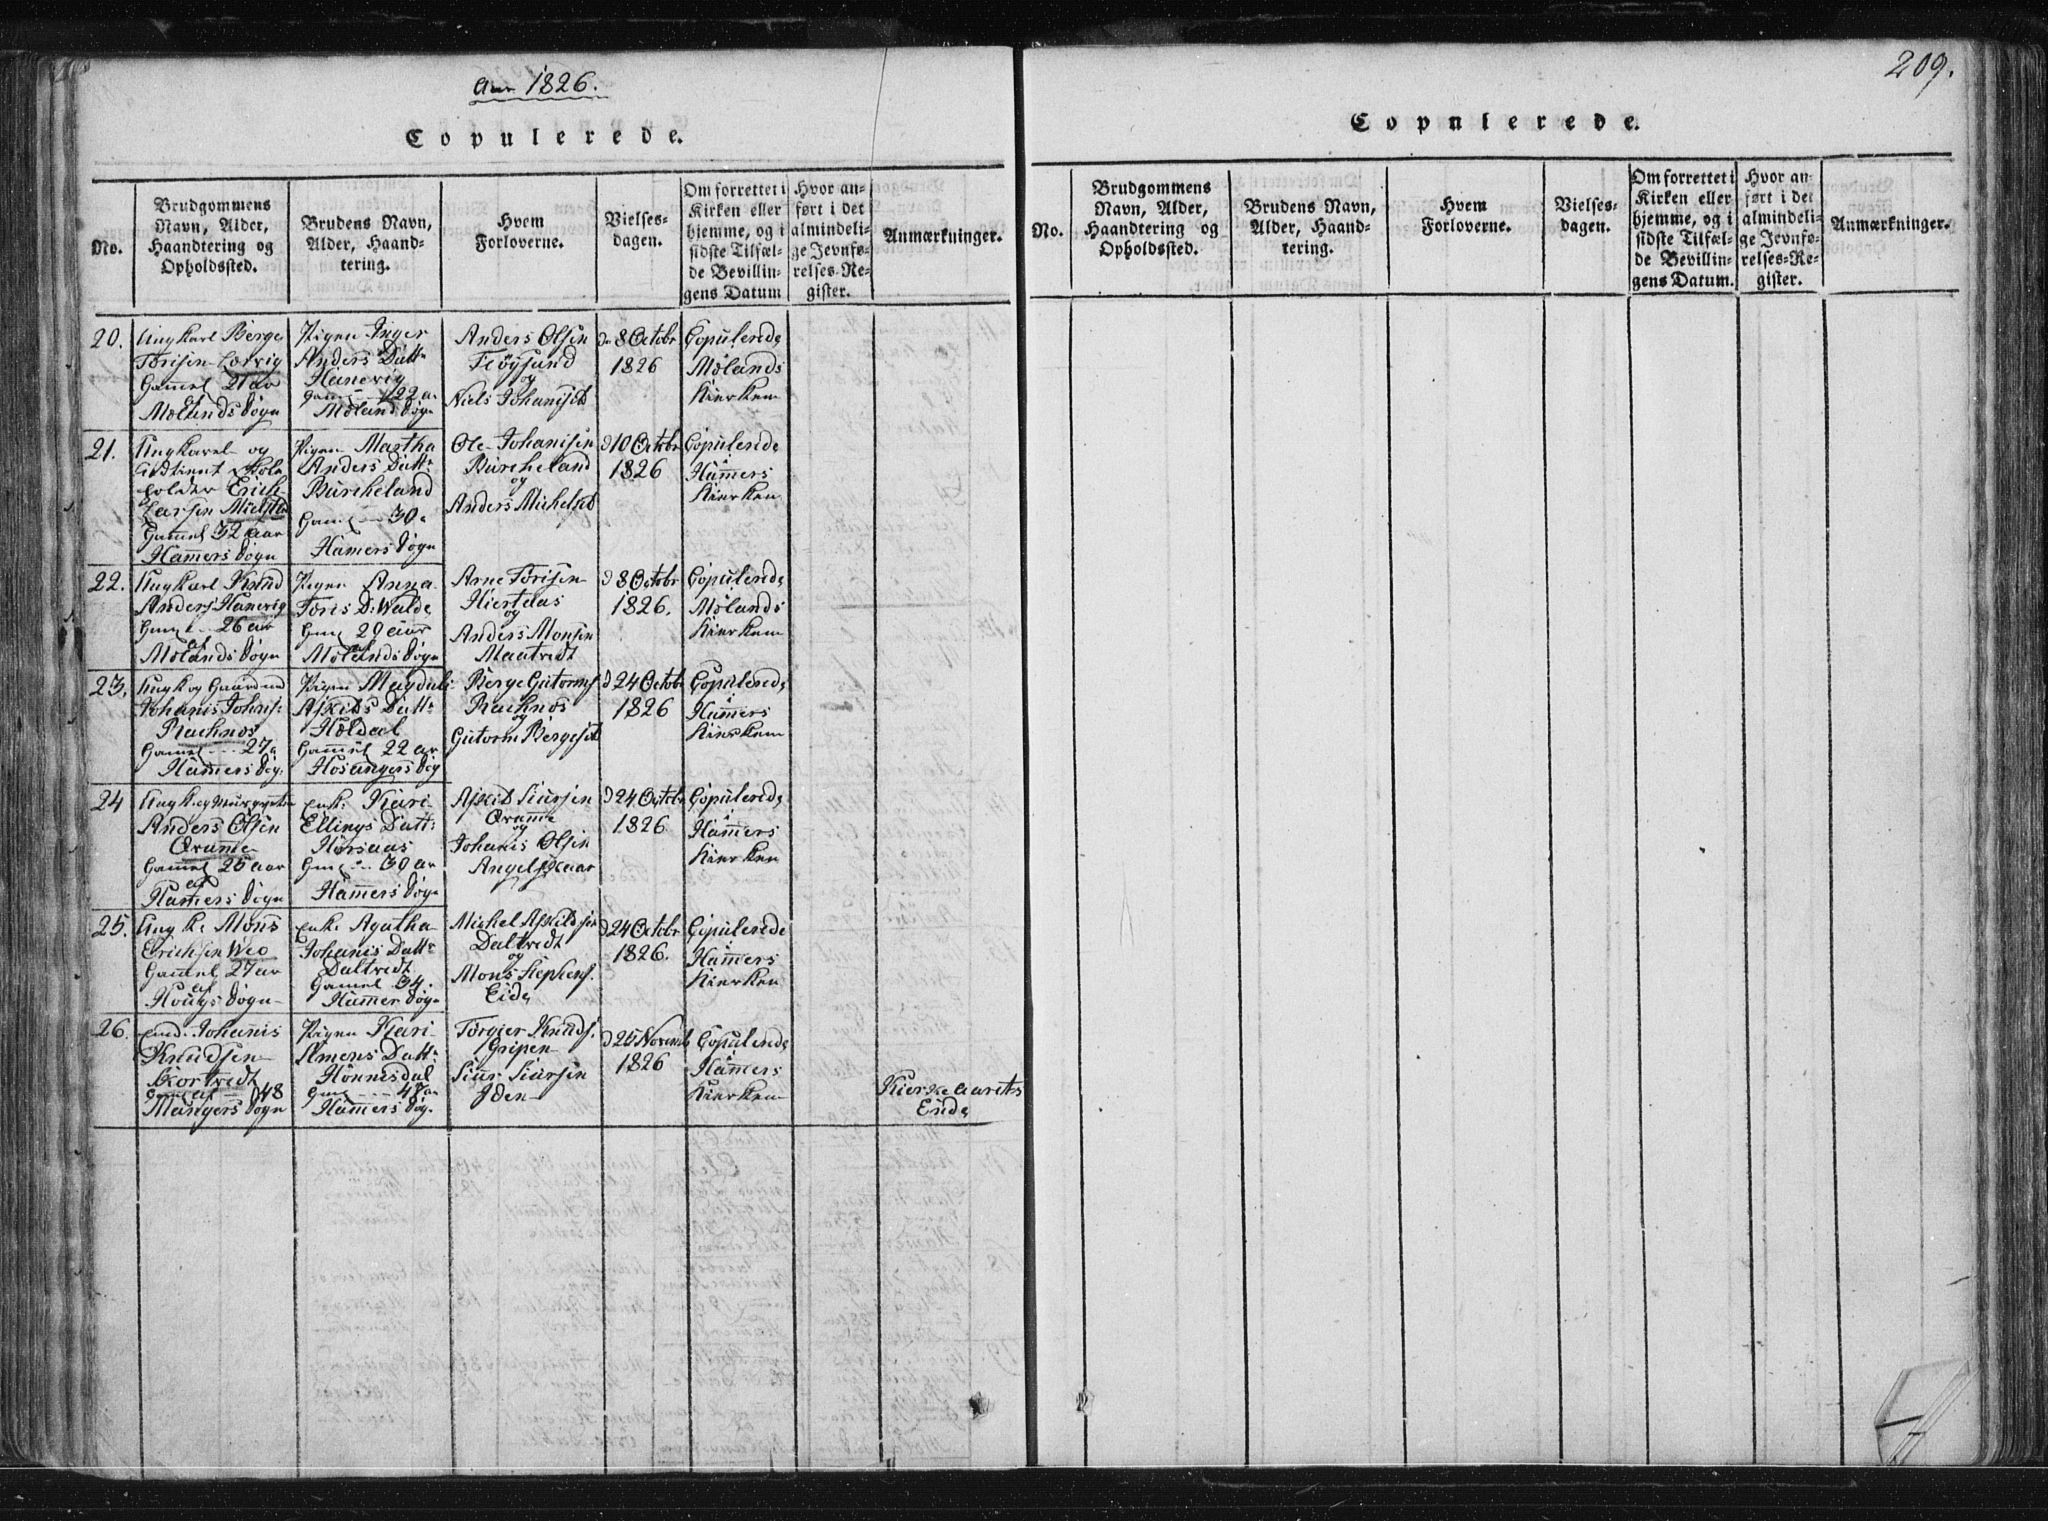 Aar 1826.
Copulerede.
No.
Brudgommens Navn, Alder, Haandtering og Opholdssted.
Brudens Navn, Alder, Haandtering.
Hvem Forloverne.
Vielsesdagen.
Om forrettet i Kirken eller hjemme, og i sidste Tilfælde Bevillingens Datum
Hvor anført i det almindelige Jevnførelses-Register.
Anmærkninger.
20.
Ungkarl Berge
Torisen
Gamel 21 aar
af
Mølands Sogn
Pigen Inger
Anders Datt:
Hanevig
Gamel 22 a
Mølands Sogn
Anders Olsen
Fløysund
og
Niels Johansen
d 8 Octobr
1826
Copulerede
Mølands
Kierken
21.
Ungkarl og
Erich
Larsen
Gamel 32 aar
Hamers Sogn
Pigen Martha
Anders Datt:
Burcheland
Gamel 30 a
Hamers Sogn
Ole Johanisen
Burcheland
og
Anders Michelsen
d 10 Octobr
1826
Copulerede
i
Hamers
Kierken
22.
Ungkarl Knud
Anders: Hanevig
Gamel 26 aar
af
Mølands Sogn
Pigen Anna
Toris D: Walde
Gamel 29 aar
af
Mølands Sogn
Arne Torisen
Hiertaas
og
Anders Monsen
Maatvedt
d 8 Octobr
1826.
Copulerede
Mølands
Kierken
23.
Johanis Johns:
Rachnøs
Gamel 27 a
Hamers Sog:
Pigen Magduli
Askilds Datt:
Høldal
Gamel 22 aar
Hosangers Sog
Berge Gutorms
Rachnøs
og
Gutorm Bergesen
d 24 Octobr
1826
Copulerede
i
Hamers
Kierken
24
Anders Olsen
Qvame
Gamel 25 aar
af
Hamers Sogn
Enke Kari
Ellings Datt:
Horsaas
Gamel 30 aar
Hamers Sogn
Askild Siursen
Qvame
og
Johanis Olsen
Angelskaar
d 24 Octobr
1826
Copulerede
i
Hamers
Kierken
25.
Ungk: Mons
Erichsen Weo
Gamel 27 aar
af
Hougs Sogn
Enke Agatha
Johanis Datt:
Daltvedt
Gamel 34.
Hamer Sogn
Michel Askildsen
Daltvedt
og
Mons Stephens.
Eide
d 24 Octobr
1826.
Copulerede
i
Hamers
Kierken
26.
Johanis
Knudsen
Skortvedt
Gamel 48
Mangers Sogn
Pigen Kari
Simons Datt:
Hønnisdal
Gamel 47 a
Hamers Sog.
Torgier Knuds.
Gripen
Siur Siursen
Iden
d 25 Novemb
1826
Copulerede
i
Hamers
Kierken
Kierke Aarets
Ende
209.
Copulerede.
No.
Brudgommens Navn, Alder, Haandtering og Opholdssted.
Brudens Navn, Alder, Haandtering.
Hvem Forloverne.
Vielsesdagen.
Om forrettet i Kirken eller hjemme, og i sidste Tilfælde Bevillingens Datum.
Hvor anført i det almindelige Jevnførelses-Register.
Anmærkninger.